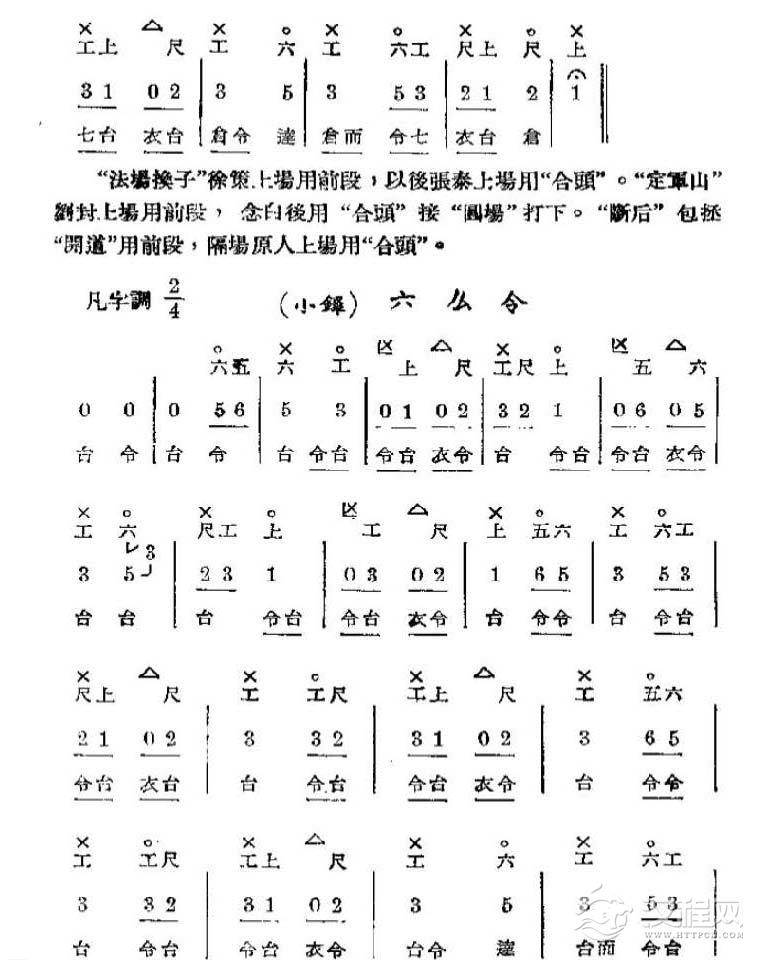 × △ × ○ × ○ × ○ ×
工上 尺 工 六 工 六工 尺上 尺 上
3 1 0 2 | 3 5 | 3 5 3 | 2 1 2 | 1 ‖
七台 衣台 倉令 達 倉而 令七 衣台 倉
“法場換子”徐策上場用前段，以後張泰上場用“合頭”。“定軍山”
劉封上場用前段，念白後用“合頭”接“圓場”打下。“斷后”包拯
“開道”用前段，隔場原人上場用“合頭”。
凡字調 2/4 （小鑼） 六么令
○ × ○ 区 △ × ○ 区 △
六五 六 工 上 尺 工尺 上 五 六
0 0 | 0 5 6 | 5 3 | 0 1 0 2 | 3 2 1 | 0 6 0 5 |
台 令 台 令 台 令台 令台 衣令 台 令台 令台 衣令
× ○ × ○ 区 △ × ○ × ○
工 六 尺工 上 工 尺 上 五六 工 六工
3 5 3 | 2 3 1 | 0 3 0 2 | 1 6 5 | 3 5 3 |
台 台 台 令台 令台 衣令 台 令令 台 令台
× △ × ○ × △ × ○
尺上 尺 工 工尺 工上 尺 工 五六
2 1 0 2 | 3 3 2 | 3 1 0 2 | 3 6 5 |
令台 衣台 台 令台 令台 衣令 台 令令
× ○ × △ × ○ × ○
工 工尺 工上 尺 工 六 工 六工
3 3 2 | 3 1 0 2 | 3 5 | 3 5 3 |
台 令台 令台 衣令 台令 達 台而 令台
文程网
WWW.HTTPCN.COM